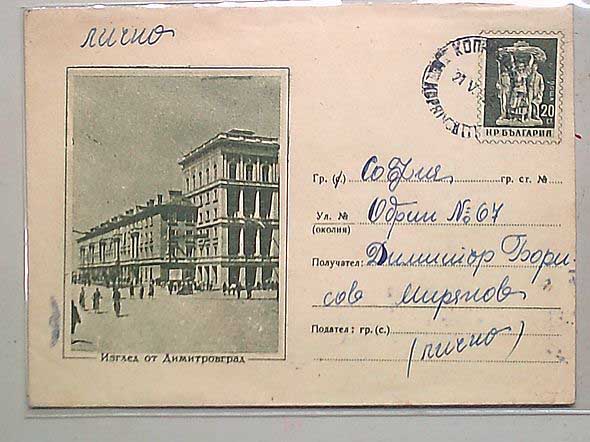 лично
20
СТ
НР БЪЛГАРИЯ
21 V
Гр. (с.) София гр. ст. №
Ул. № Обрии № 67
(околия)
Получател: Димитър Бори-
сов Мирянов
Подател: гр. (с.)
(лично)
Изглед от Димитровград